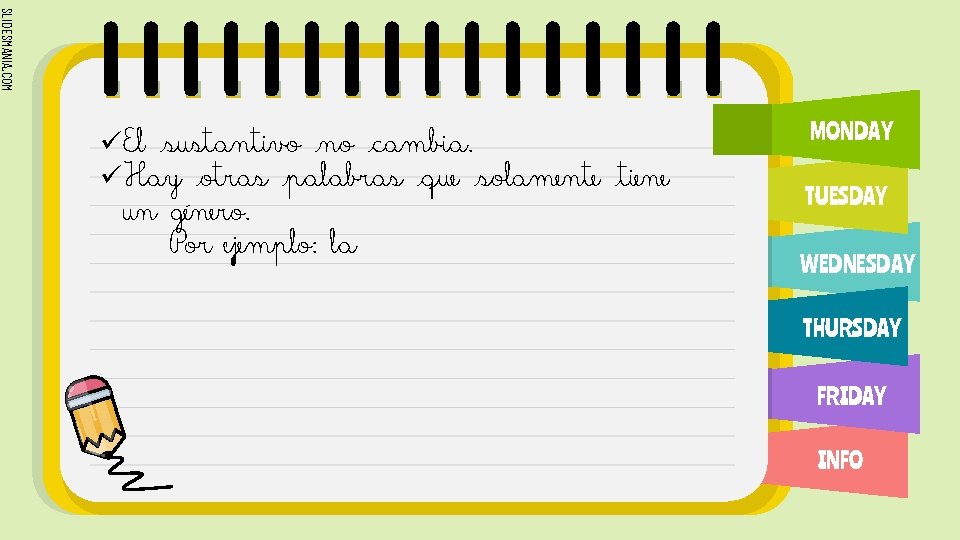 SLIDESMANIA.COM
✓El sustantivo no cambia.
✓Hay otras palabras que solamente tiene
un género.
Por ejemplo: la
MONDAY
TUESDAY
WEDNESDAY
THURSDAY
FRIDAY
INFO